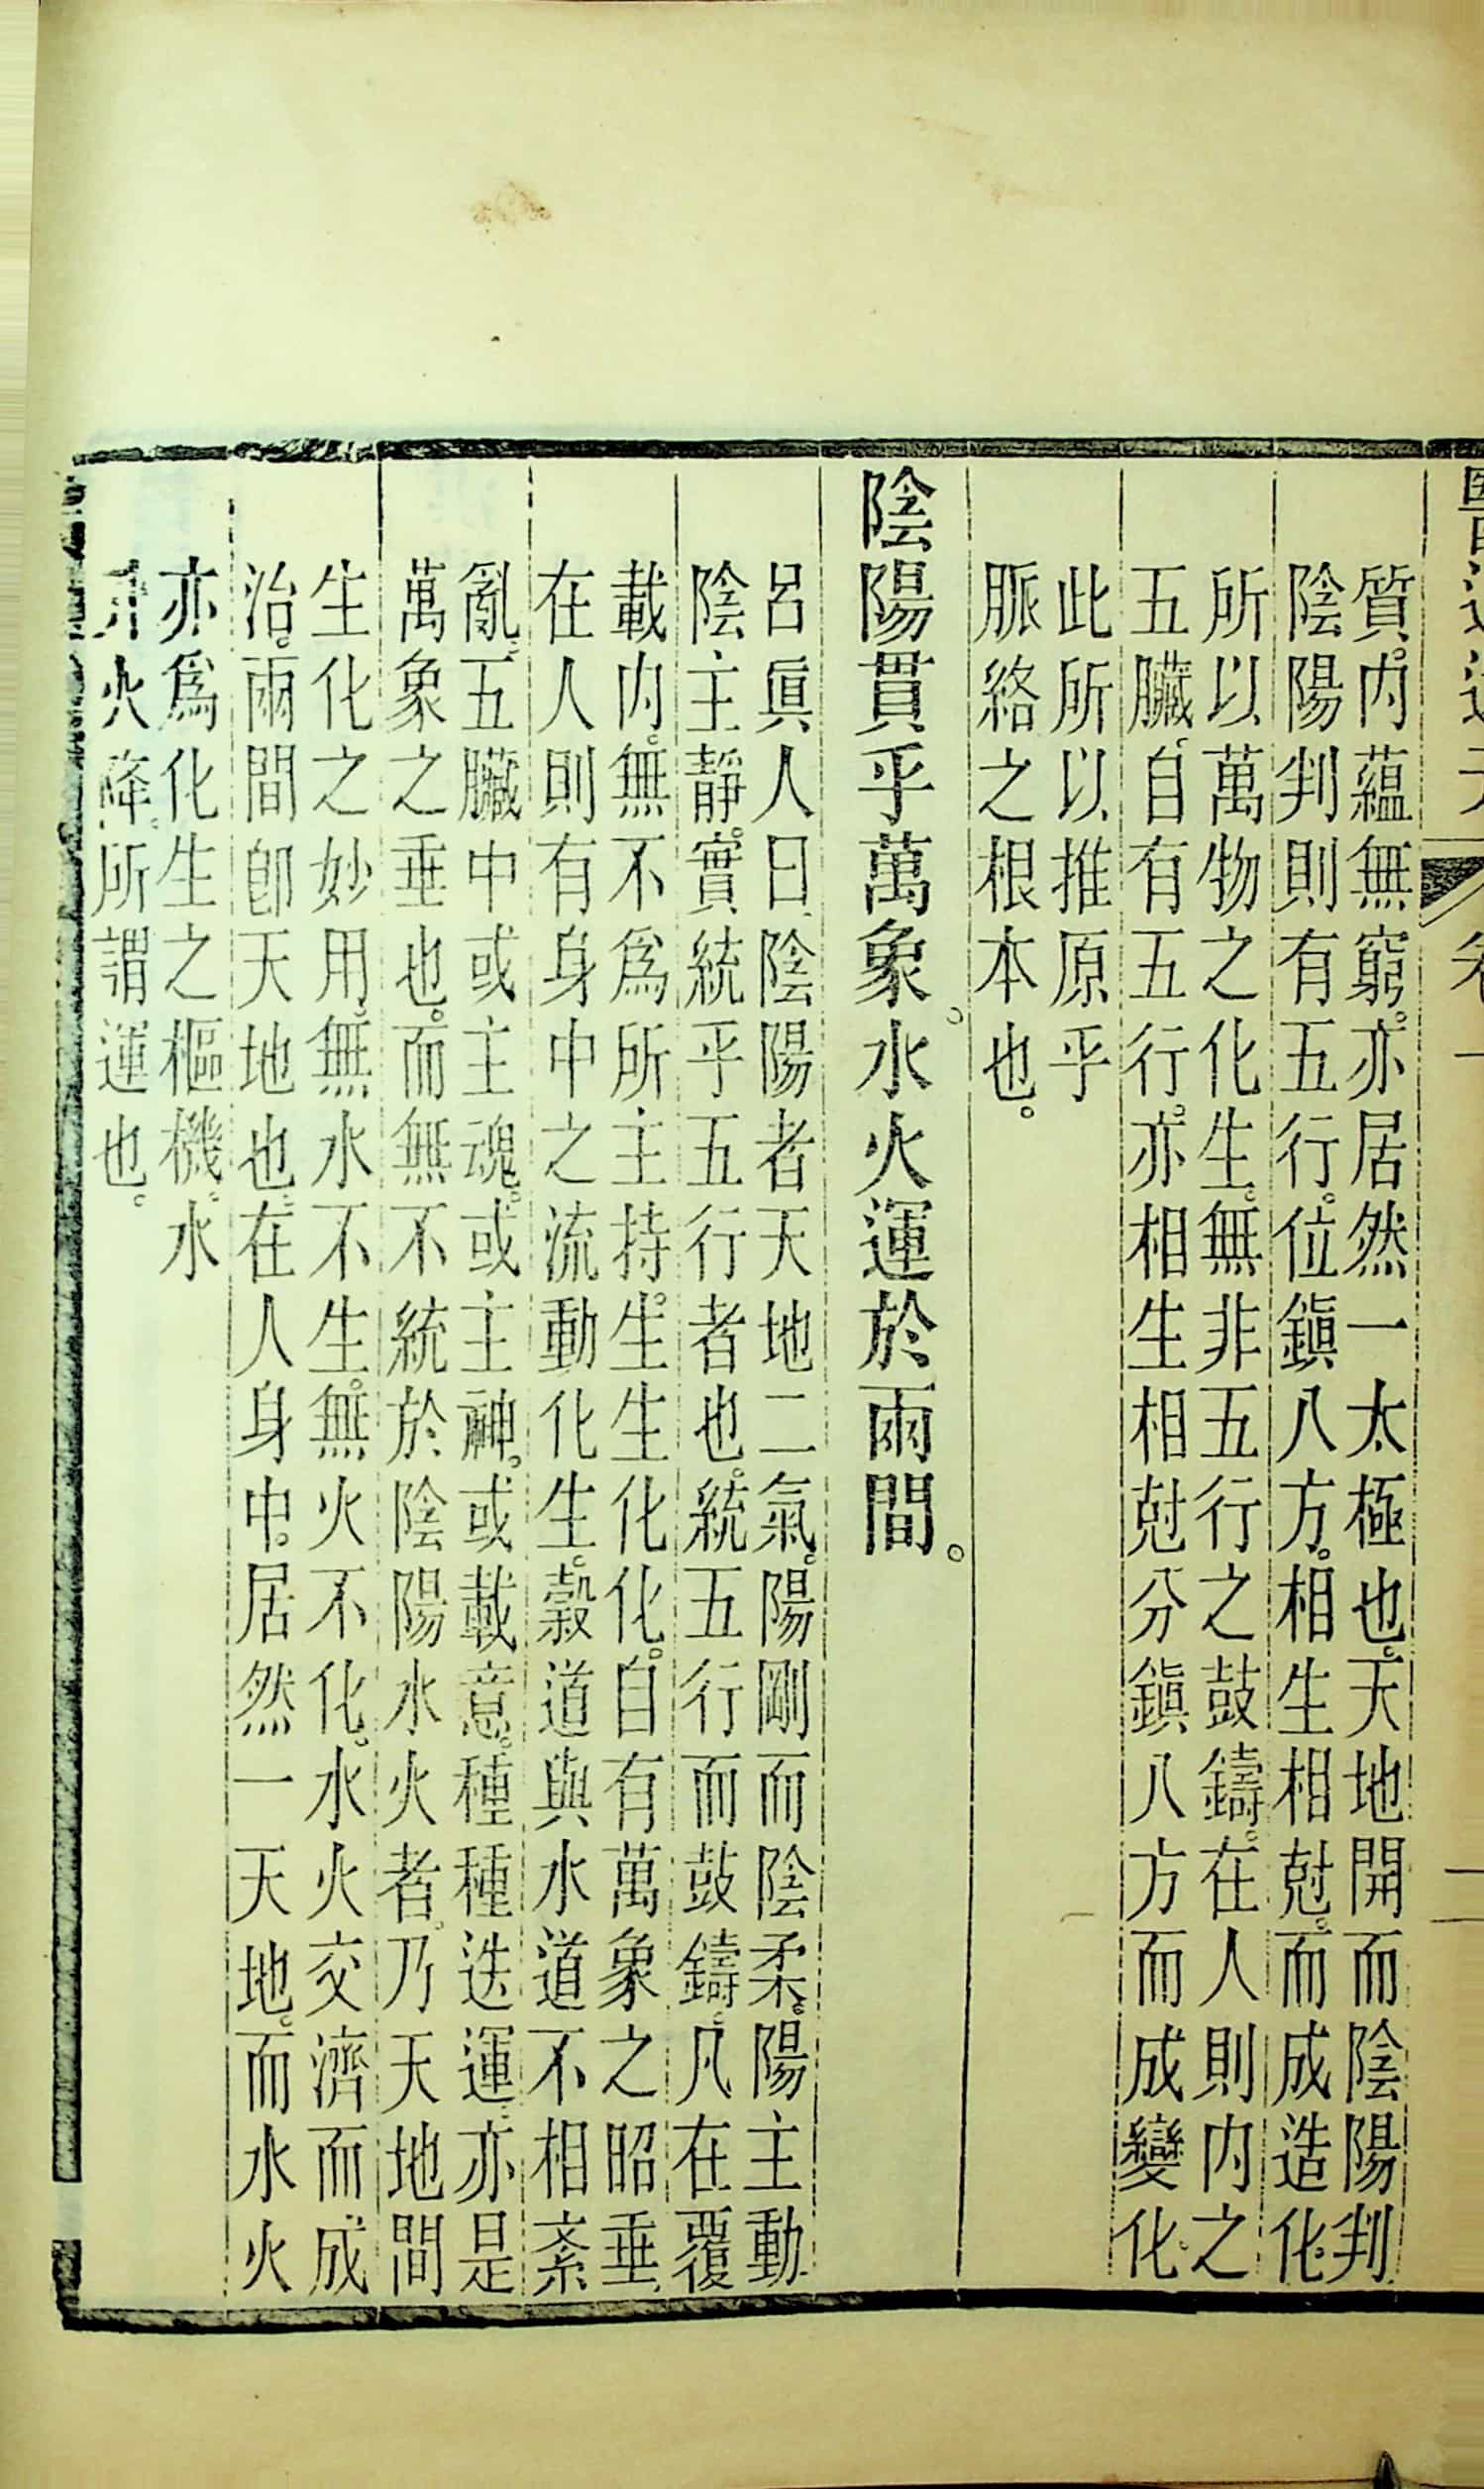 質。内蘊無窮。亦居然一太極也。天地開而陰陽判
陰陽判則有五行。位鎮八方。相生相尅。而成造化。
所以萬物之化生。無非五行之鼓鑄。在人則内之
五臟。自有五行。亦相生相尅分鎮八方而成變化。
此所以推原乎
脈絡之根本也。
陰陽貫乎萬象。水火運於兩間。
呂眞人曰、陰陽者天地二氣。陽剛而陰柔。陽主動
陰主靜。實統乎五行者也。統五行而鼓鑄。凡在覆
載内。無不爲所主持。生生化化。自有萬象之昭垂
在人則有身中之流動化生。穀道與水道不相紊
亂。五臟中或主魂。或主神。或載意。種種迭運。亦是
萬象之垂也。而無不統於陰陽水火者。乃天地間
生化之妙用。無水不生。無火不化。水火交濟而成
治。兩間卽天地也。在人身中。居然一天地。而水火
亦爲化生之樞機。水
升火降。所謂運也。